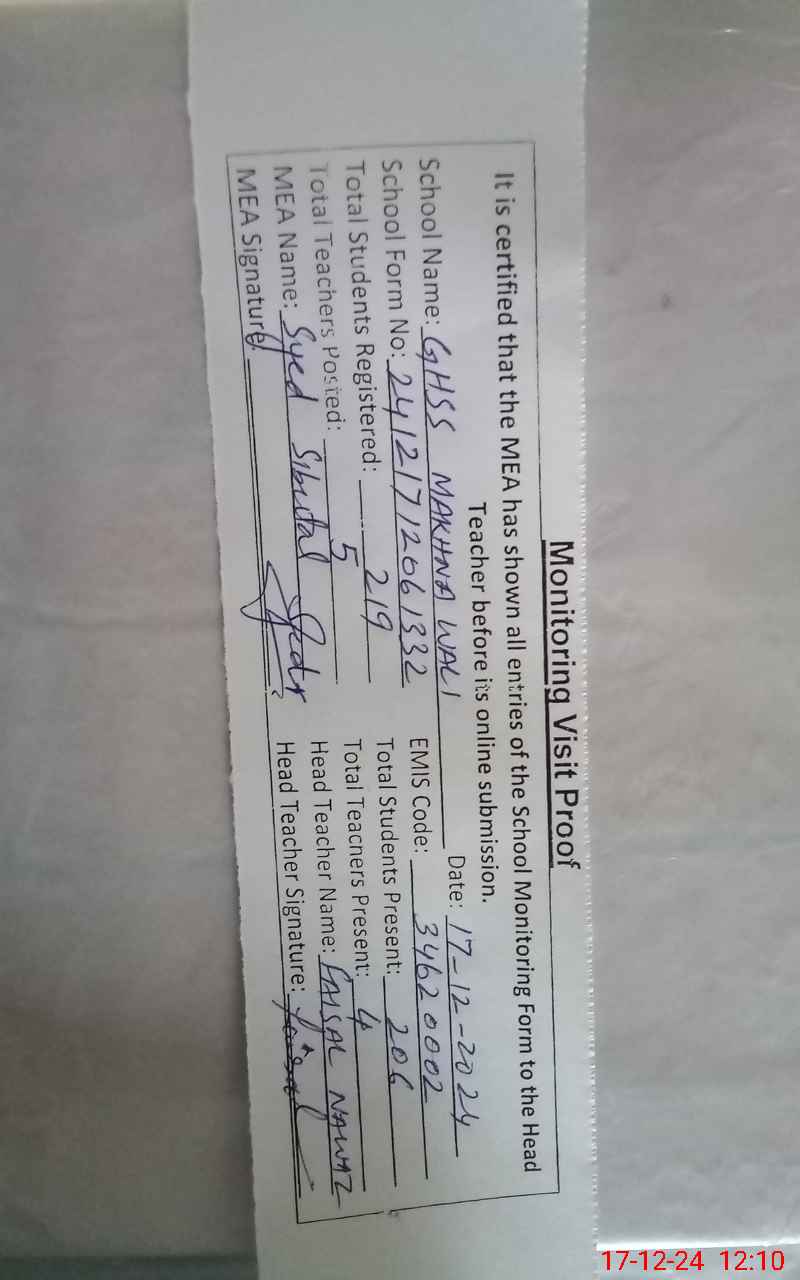 Monitoring Visit Proof
It is certified that the MEA has shown all entries of the School Monitoring Form to the Head
Teacher before its online submission.
Date: 17-12-2024
School Name: GHSS MAKHNA WALI
School Form No: 24121712061332 EMIS Code: 34620002
Total Students Registered: 219 Total Students Present: 206
Total Teachers Posted: 5 Total Teachers Present: 4
MEA Name: Syed Head Teacher Name: FAISAL NAWAZ
MEA Signature: Head Teacher Signature: Faisal
17-12-24 12:10